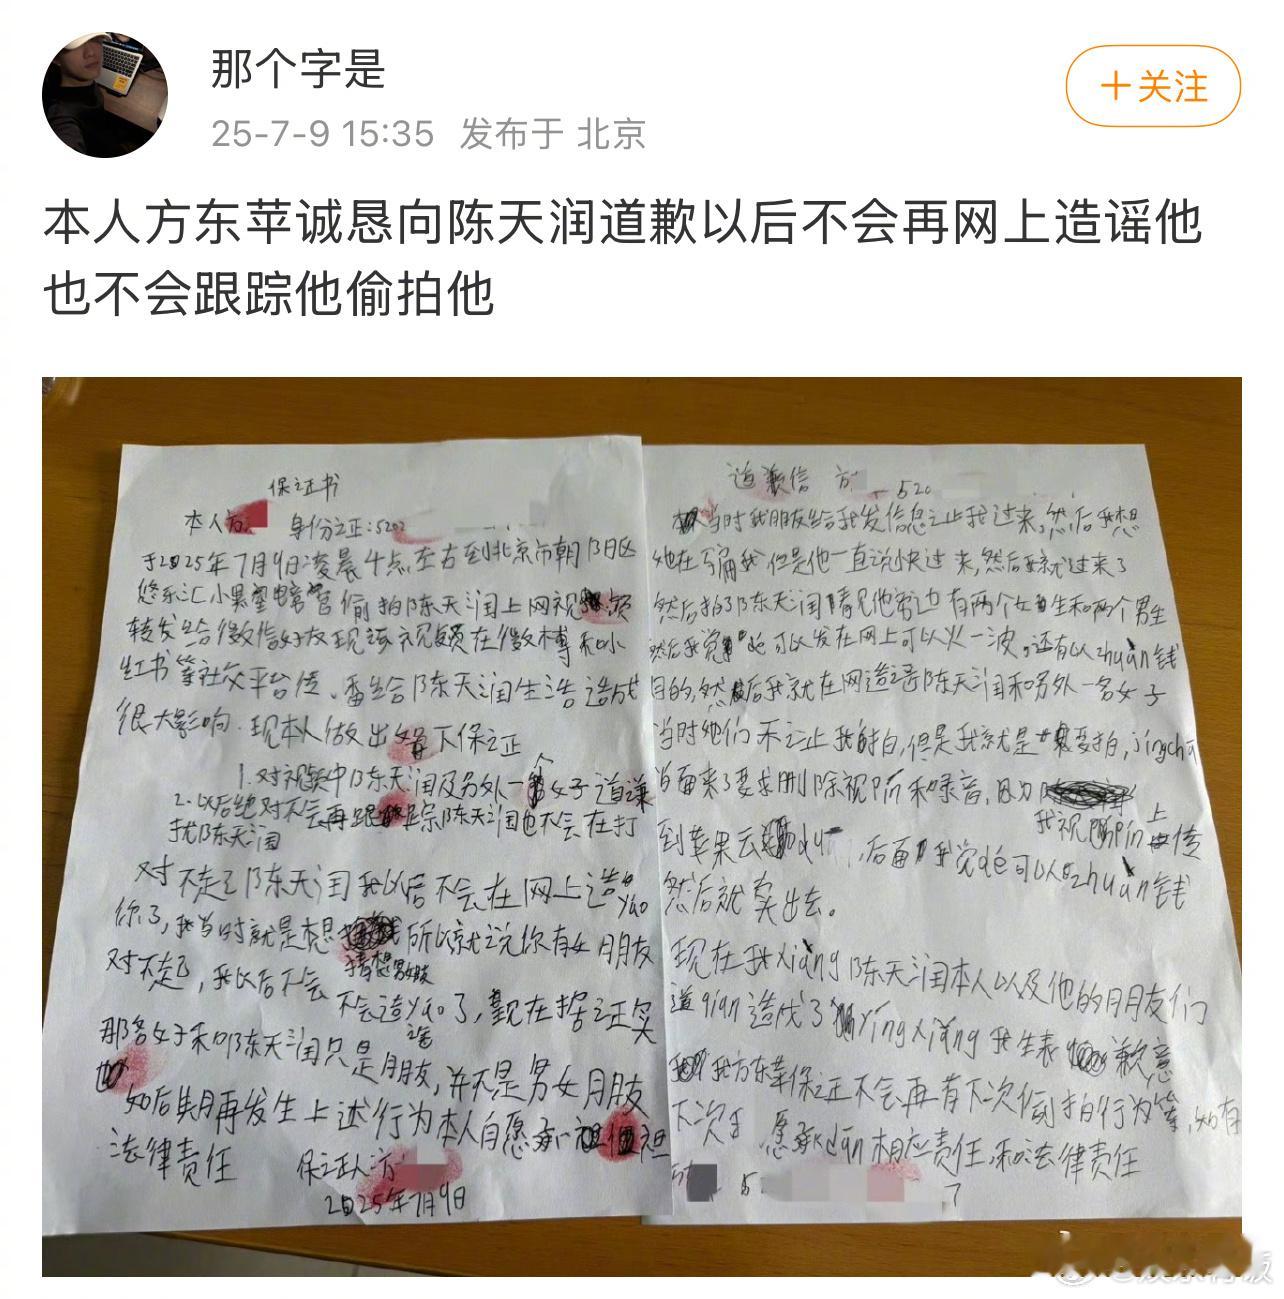 那个字是
+关注
25-7-9 15:35 发布于 北京
本人方东苹诚恳向陈天润道歉以后不会再网上造谣他
也不会跟踪他偷拍他
保证书
本人方 身份证:5202
于2025年7月9日凌晨4点左右到北京市朝阳区
悠乐汇小黑 偷拍陈天润上网视频
转发给微信好友现该视频在微博和小
红书等社交平台传。番给陈天润生活造成
很大影响.现本人做出如下保证
1.对视频中陈天润及另外一个女子道谦
2.以后绝对不会再跟踪陈天润也不会在打
扰陈天润
对不起了陈天润我以后不会在网上造yao
你了,我当时就是想 所以就说你有女朋友
猜想男女友
对不起,我以后不会 不会造yao了,现在据证实
那名女子和陈天润只是朋友,并不是男女朋友
如后续再发生上述行为本人自愿承 担
法律责任 保证人方
2025年7月9日
道歉信 方 520
当时我朋友给我发信息让我过来,然后我想
她在骗我但是他一直说快过来,然后我就过来了
然后拍了陈天润看见他旁边有两个女生和两个男生
然后我觉 可以发在网上可以火一波。还有以zhuàn钱
目的,然后我就在网造谣陈天润和另外一名女子
当时她们不让我拍,但是我就是要拍,jingchá
当面来了要求删除视频和录音,因为
我视频上传
到苹果云 ,后面我觉 可以zhuàn钱
然后就卖出去。
现在我xiàng陈天润本人以及他的朋友们
道qiàn造成了yǐngxiǎng我 表 歉意
我方东苹保证不会再有下次偷拍行为等,如有
下次 愿承dān相应责任,和法律责任